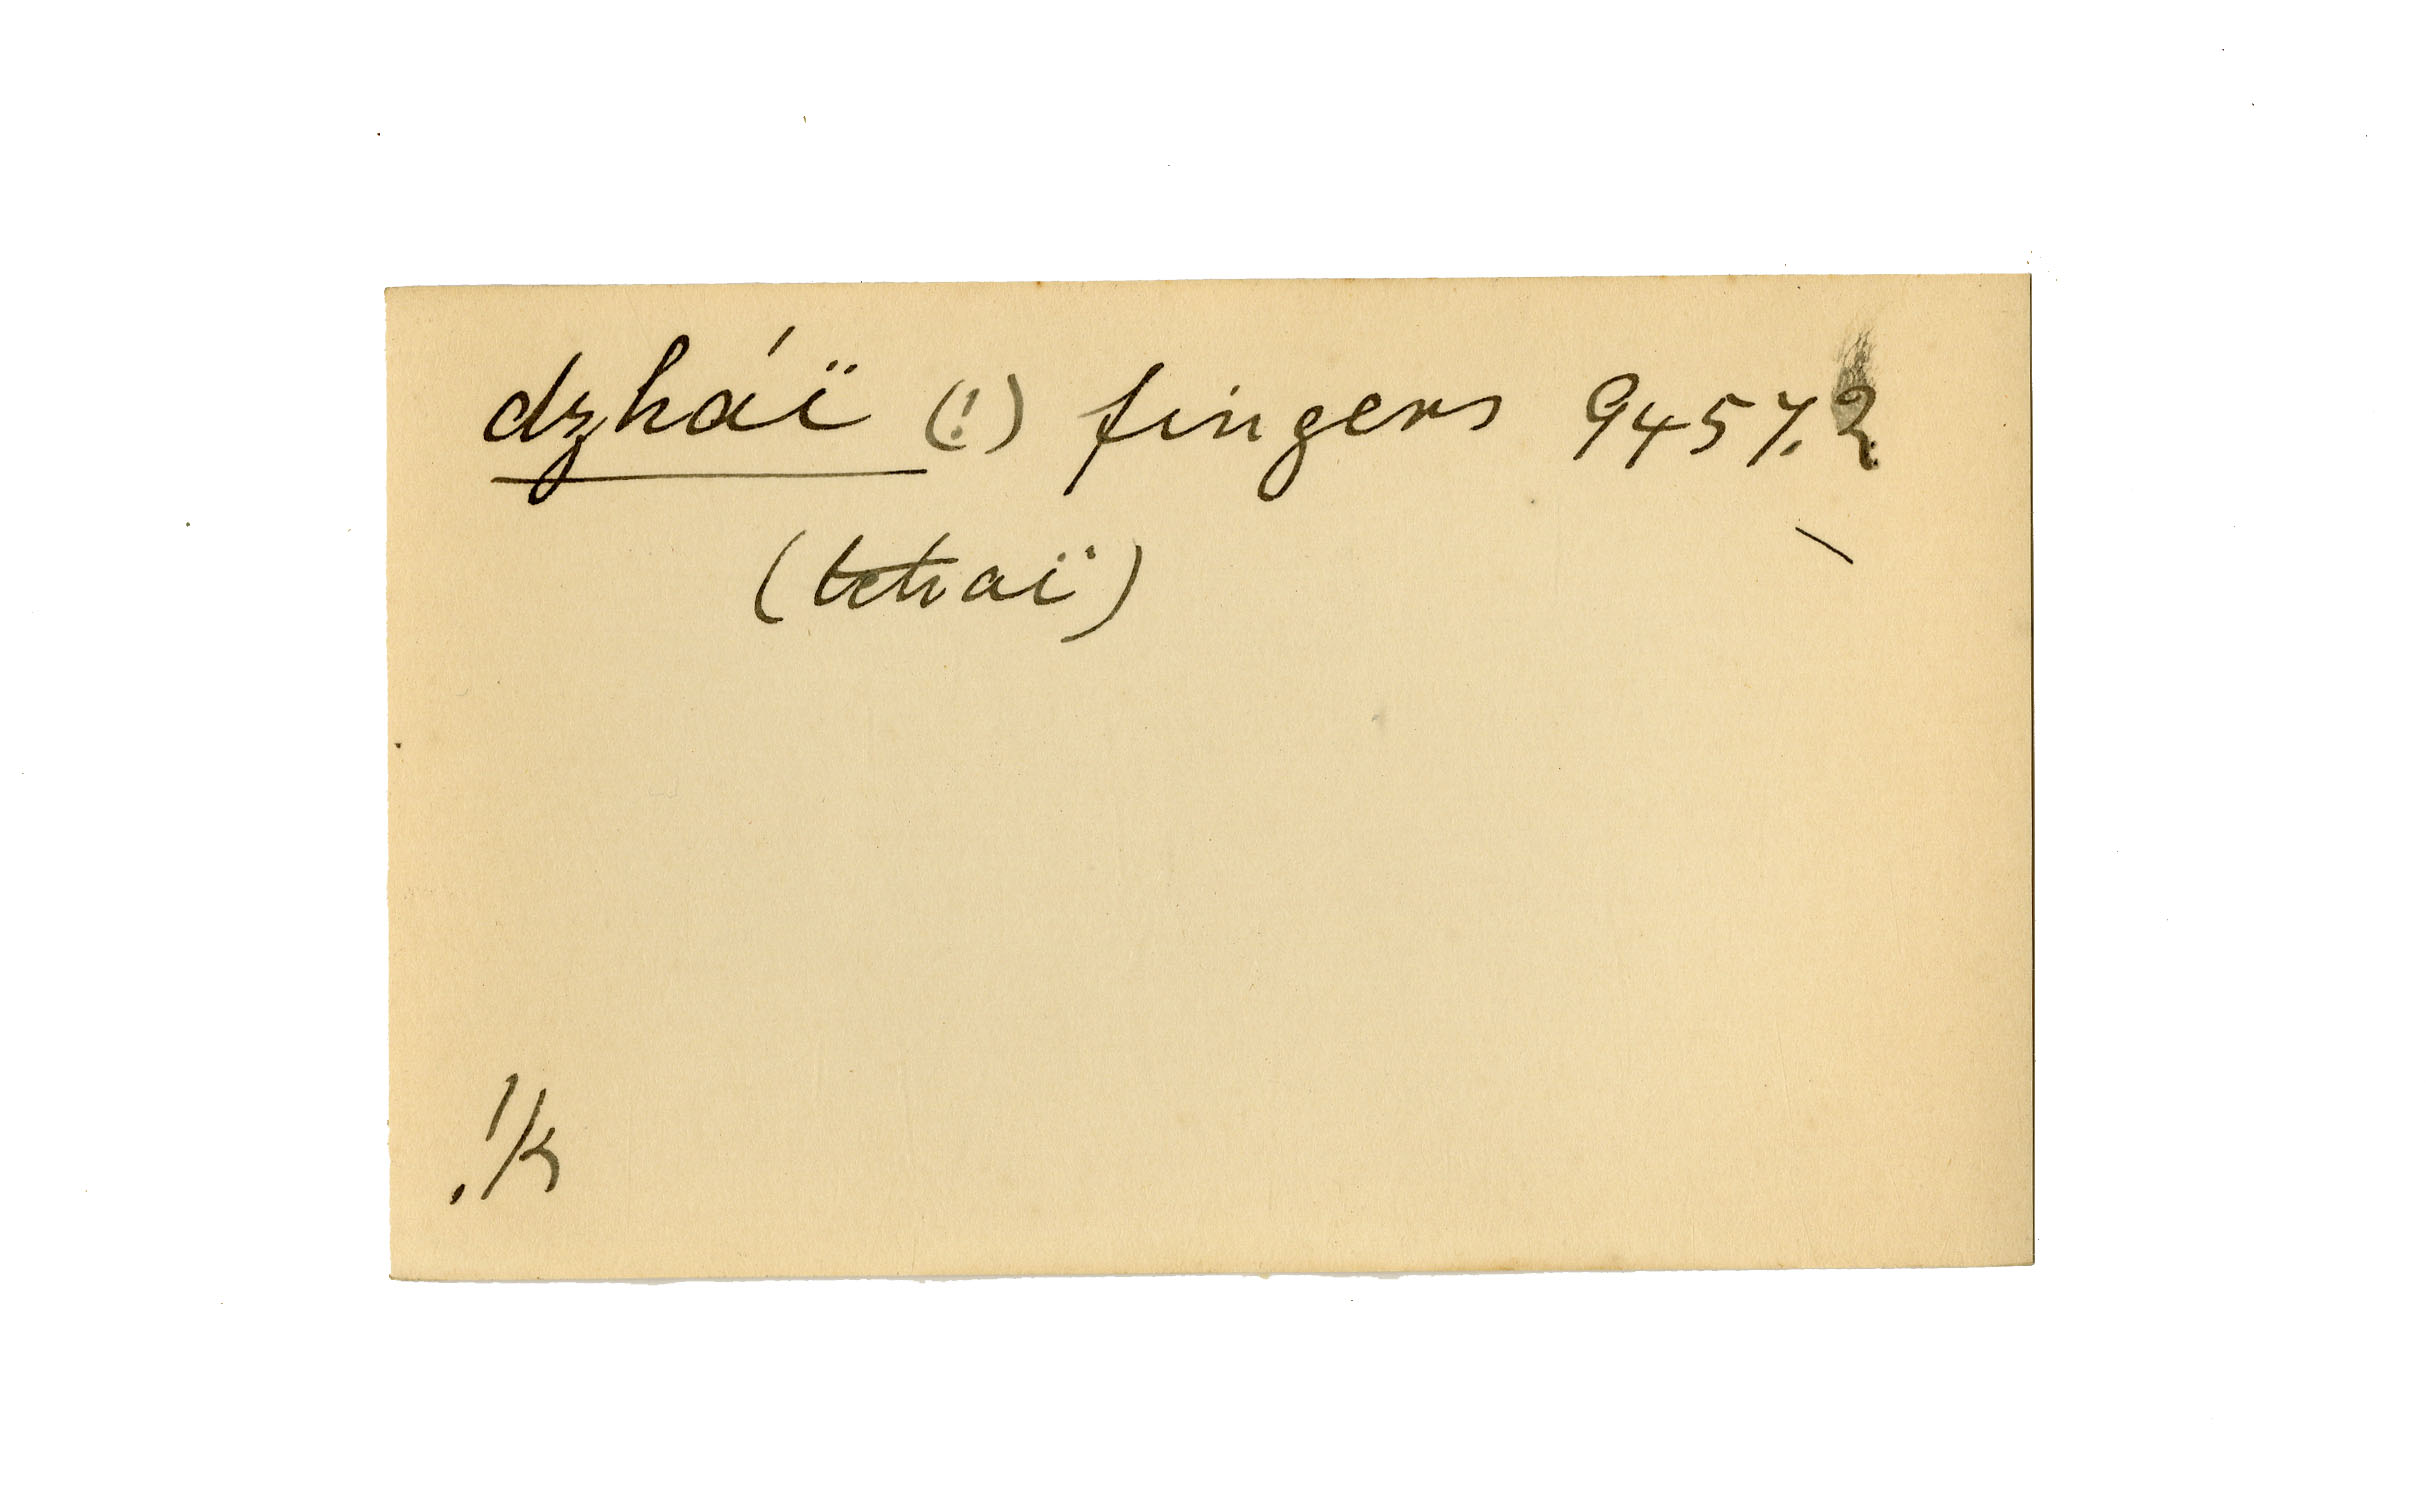 dzháï (!) fingers 9457.2
(tchaï)
!k